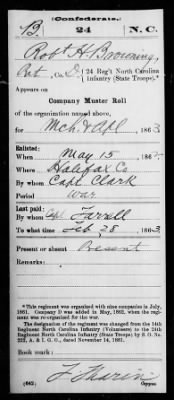 (Confederate.)
B. 24 N.C.
Robt H Browning
Pvt, Co. D, 24 Reg't North Carolina
Infantry (State Troops).*
Appears on
Company Muster Roll
of the organization named above,
for Mch & Apl, 1863.
Enlisted:
When May 15, 186
Where Halifax Co
By whom Capt. Clark
Period War
Last paid:
By whom Capt. Farrell
To what time Feb 28, 1863.
Present or absent Present
Remarks:
*This regiment was organized with nine companies in July,
1861. Company D was added in May, 1862, when the regi-
ment was re-organized for the war.
The designation of this regiment was changed from the 14th
Regiment North Carolina Infantry (Volunteers) to the 24th
Regiment North Carolina Infantry (State Troops) by S. O. No.
222, A. & I. G. O., dated November 14, 1861.
Book mark:
(642)
Copyist.